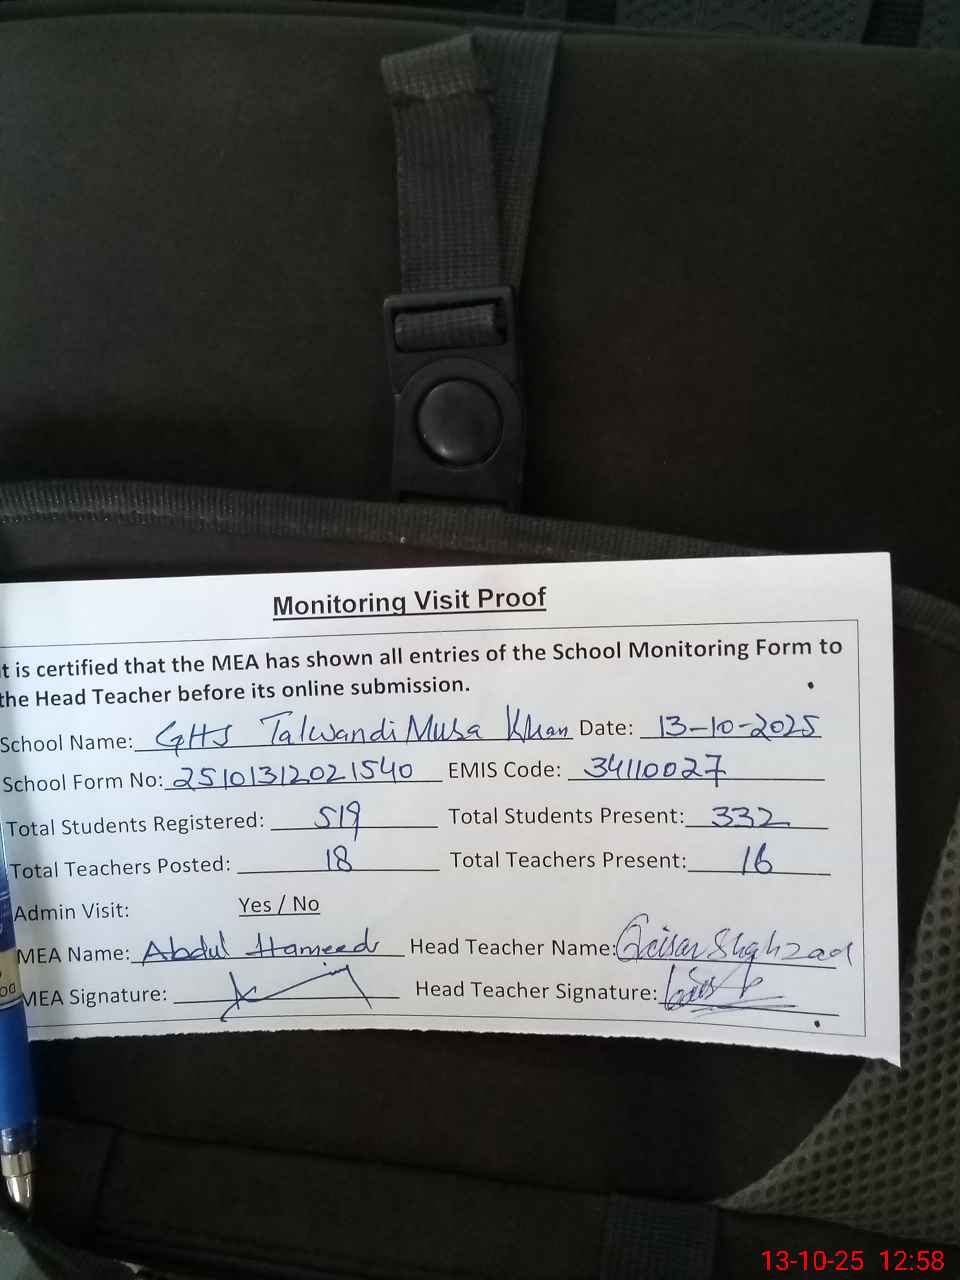 Monitoring Visit Proof
t is certified that the MEA has shown all entries of the School Monitoring Form to
the Head Teacher before its online submission.
School Name: GHS Talwandi Musa Khan Date: 13-10-2025
School Form No: 25101312021540 EMIS Code: 34110027
Total Students Registered: 519 Total Students Present: 332
Total Teachers Posted: 18 Total Teachers Present: 16
Admin Visit: Yes / No
MEA Name: Abdul Hameed Head Teacher Name: Qaisar Shahzad
MEA Signature: Head Teacher Signature:
13-10-25 12:58